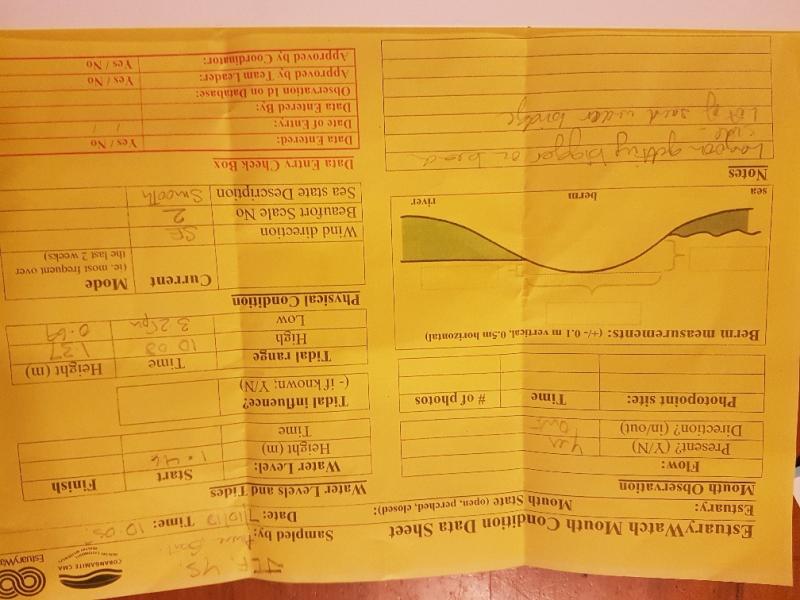 EstuaryWatch Mouth Condition Data Sheet
Estuary: Mouth State (open, perched, closed):
Mouth Observation
Flow:
Present? (Y/N) Yes
Direction? (in/out) Out
Photopoint site: Time # of photos
Berm measurements: (+/- 0.1 m vertical, 0.5m horizontal)
sea berm river
Notes
Lagoon getting bigger on
side
Lot of sand under bridge
JEF YS
CORANGAMITE CMA
EstuaryWa
Sampled by:
Date: 7/10/10 Time: 10.05
Water Levels and Tides
Water Level: Start Finish
Height (m) 1.46
Time
Tidal influence?
(- if known; Y/N)
Tidal range Time Height (m)
High 10 03 1.37
Low 3 25pm 0.69
Physical Condition
Current Mode
(ie. most frequent over
the last 2 weeks)
Wind direction SE
Beaufort Scale No 2
Sea state Description Smooth
Data Entry Check Box
Data Entered: Yes / No
Date of Entry: / /
Data Entered By:
Observation Id on Database:
Approved by Team Leader: Yes / No
Approved by Coordinator: Yes / No